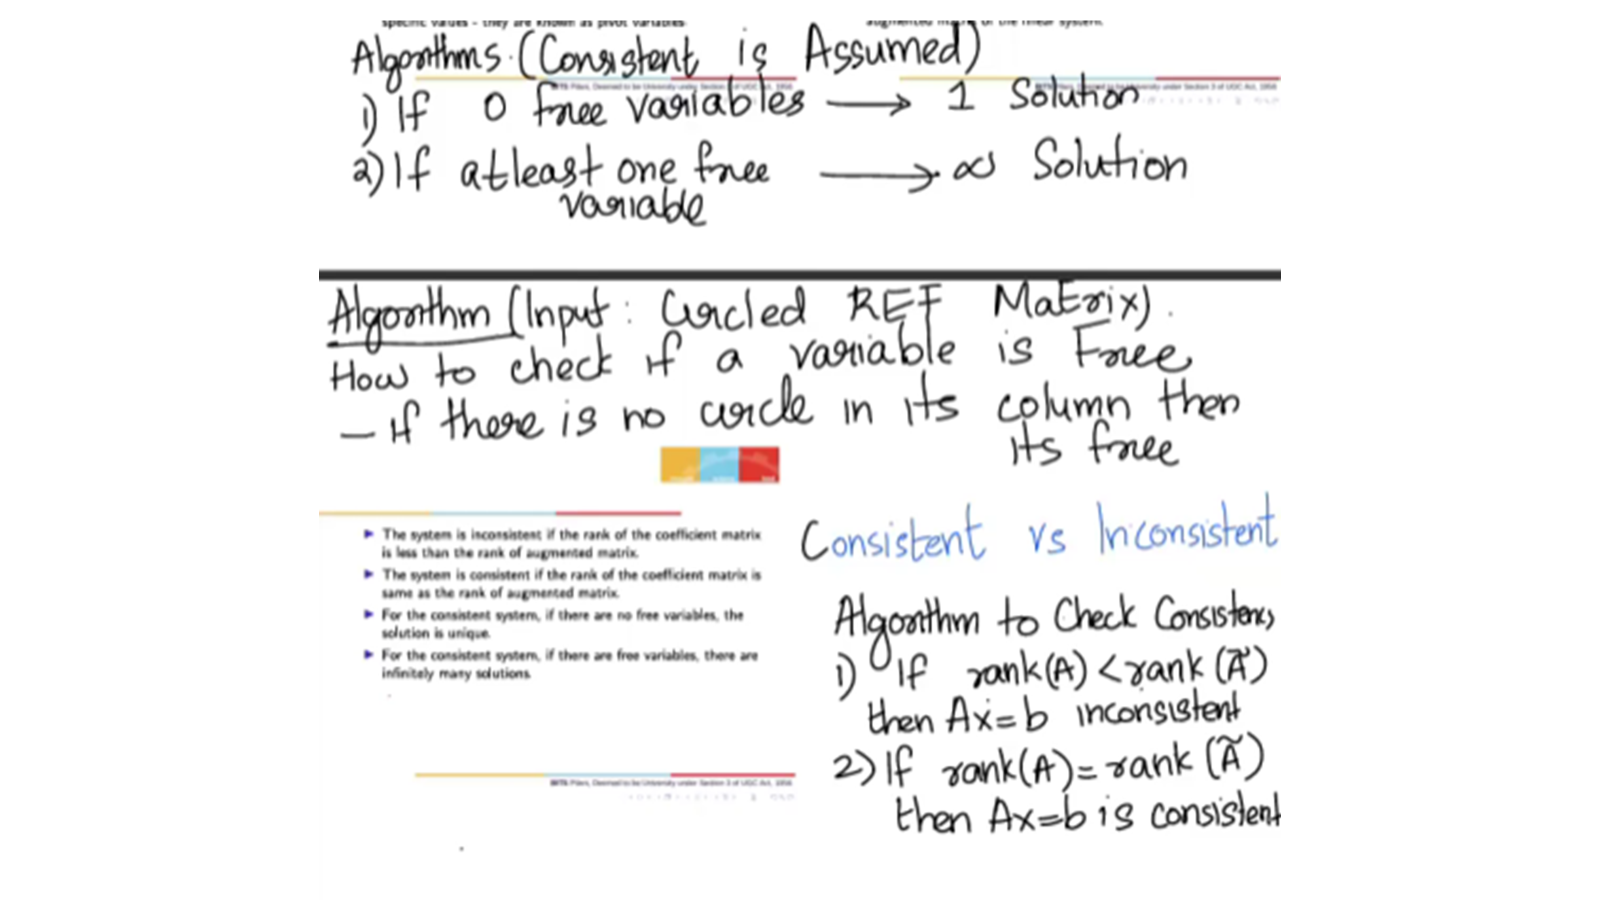 specific values - they are known as pivot variables
augmented matrix of the linear system.
Algorithms (Consistent is Assumed)
BITS Pilani, Deemed to be University under Section 3 of UGC Act, 1956
1) If 0 free variables → 1 Solution
2) If atleast one free → ∞ Solution
variable
Algorithm (Input: Circled REF Matrix).
How to check if a variable is Free
— If there is no circle in its column then
its free
► The system is inconsistent if the rank of the coefficient matrix
is less than the rank of augmented matrix.
► The system is consistent if the rank of the coefficient matrix is
same as the rank of augmented matrix.
► For the consistent system, if there are no free variables, the
solution is unique.
► For the consistent system, if there are free variables, there are
infinitely many solutions.
BITS Pilani, Deemed to be University under Section 3 of UGC Act, 1956
Consistent vs Inconsistent
Algorithm to Check Consistency
1) If rank(A) < rank(Ã)
then Ax=b inconsistent
2) If rank(A) = rank(Ã)
then Ax=b is consistent